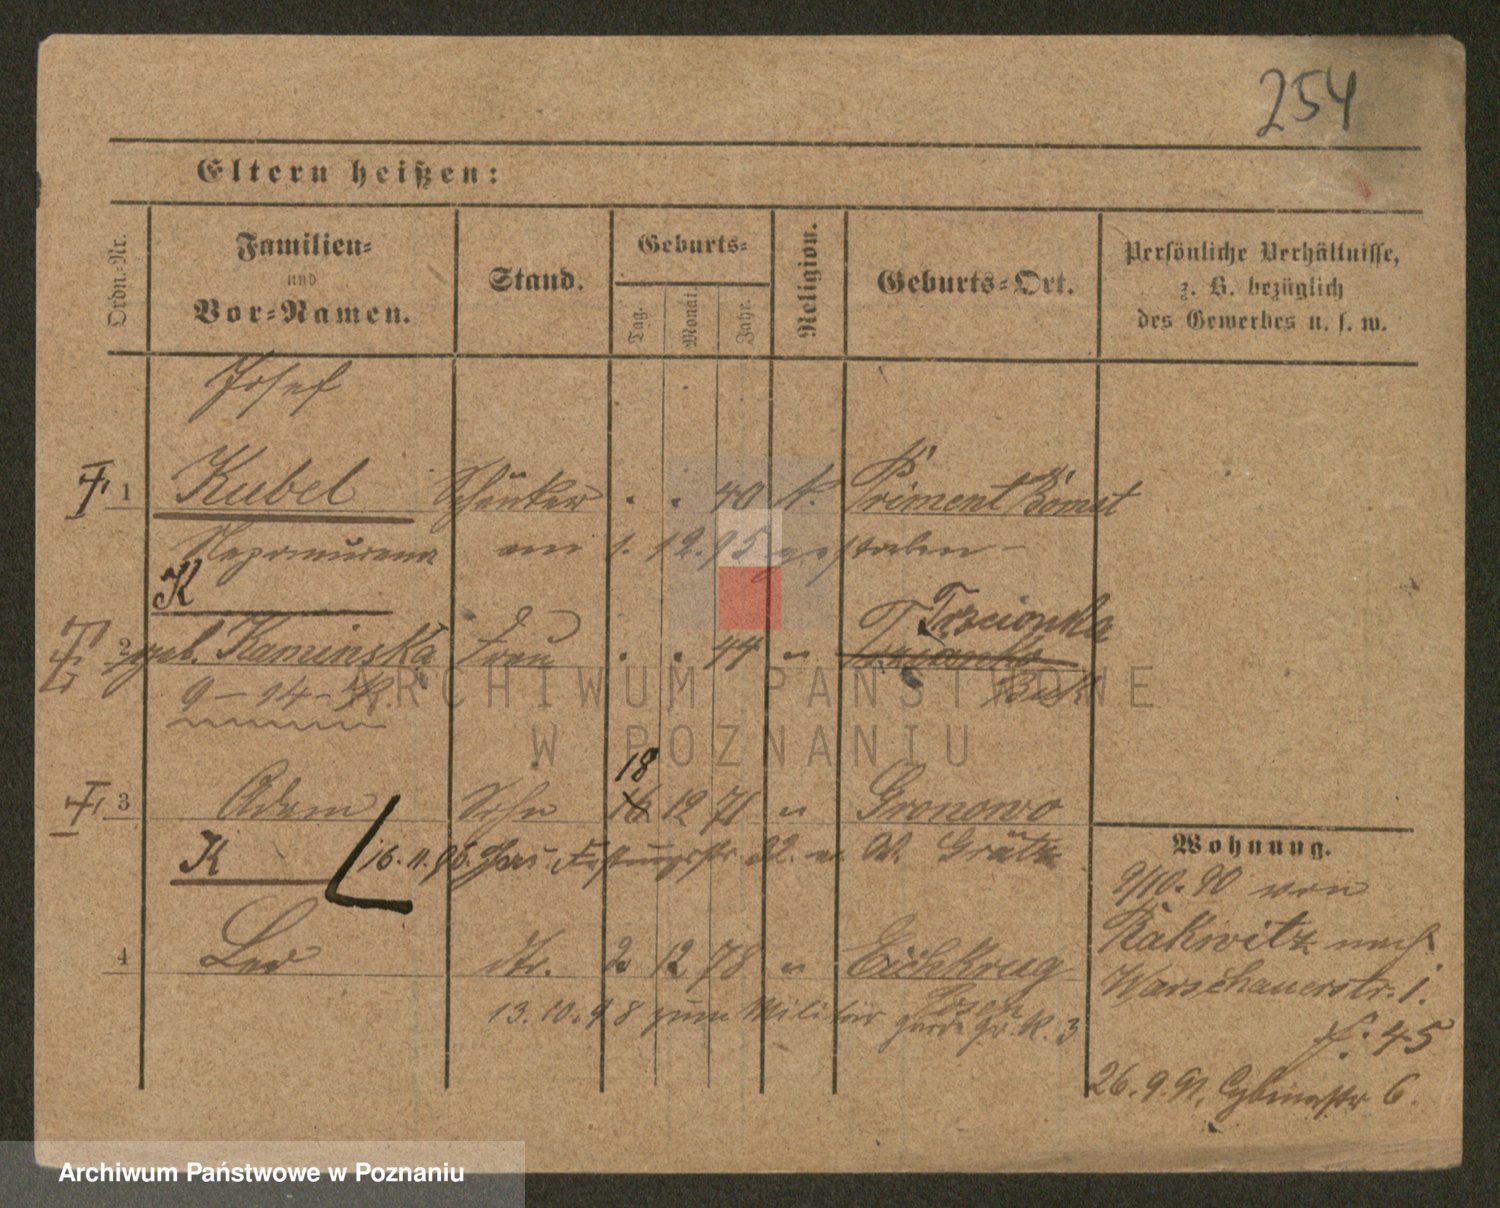 254
Eltern heißen:
Ordn.-Nr. Familien- und Vor-Namen. Stand. Geburts- Tag. Monat. Jahr. Religion. Geburts-Ort. Persönliche Verhältnisse, z. B. bezüglich des Gewerbes u. s. w.
Josef
1 Kubel Schänker . . 40 k. Priment Bomst
Nepomucena am 1. 12. 95 gestorben –
K
Trzcionka
2 geb. Kaminska Frau . . 44 " Trzcionka
9 – 14 – K. Buk
18
3 Adam Sohn 16 12 71 " Gronowo
K 16. 11. 96. Festungsstr 22. Grätz
Wohnung.
9/10. 90 von
Rakwitz nach
Warschauerstr. 1.
4 Leo dto. 2 12 78 " Eichkrug
Posen
13. 10. 98 zum Militär Garde Gr. R. 3
f: 45
26. 9. 91, Cybinastr 6.
ARCHIWUM PAŃSTWOWE
W POZNANIU
Archiwum Państwowe w Poznaniu